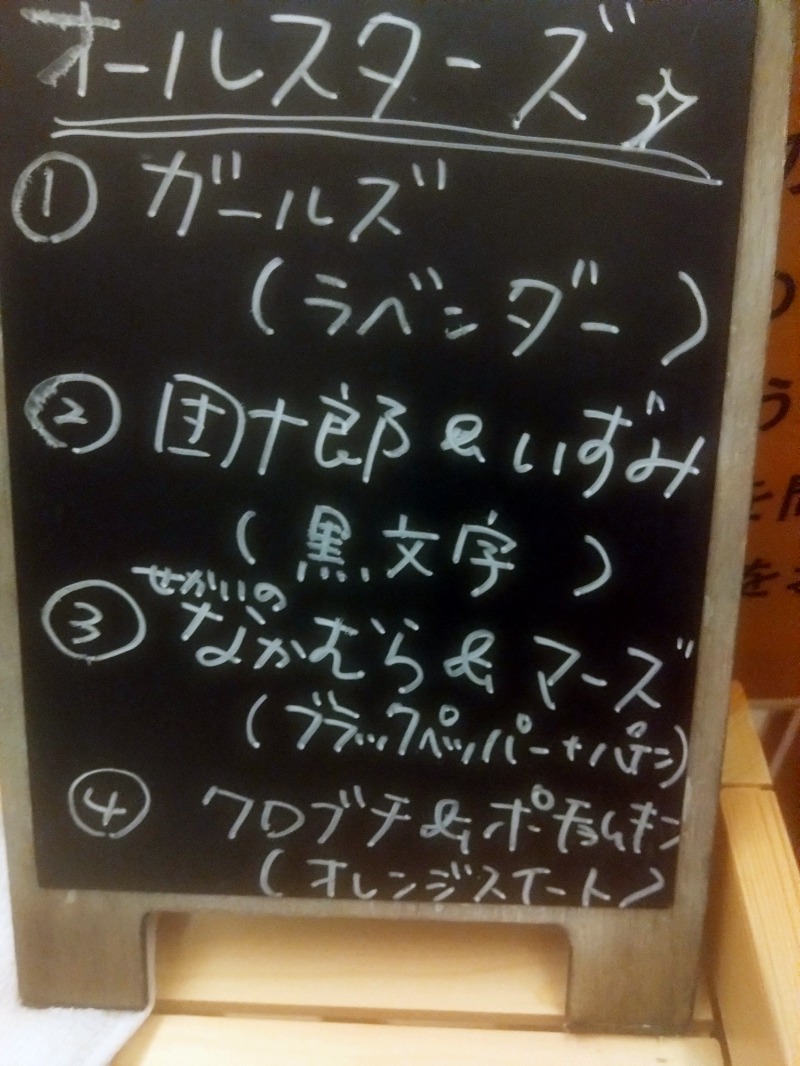 オールスターズ
① ガールズ
(ラベンダー)
② 団十郎&いずみ
(黒文字)
せかいの
③ なかむら&マーズ
(ブラックペッパー+パイン)
④ クロブチ&ポチョムキン
(オレンジスイート)